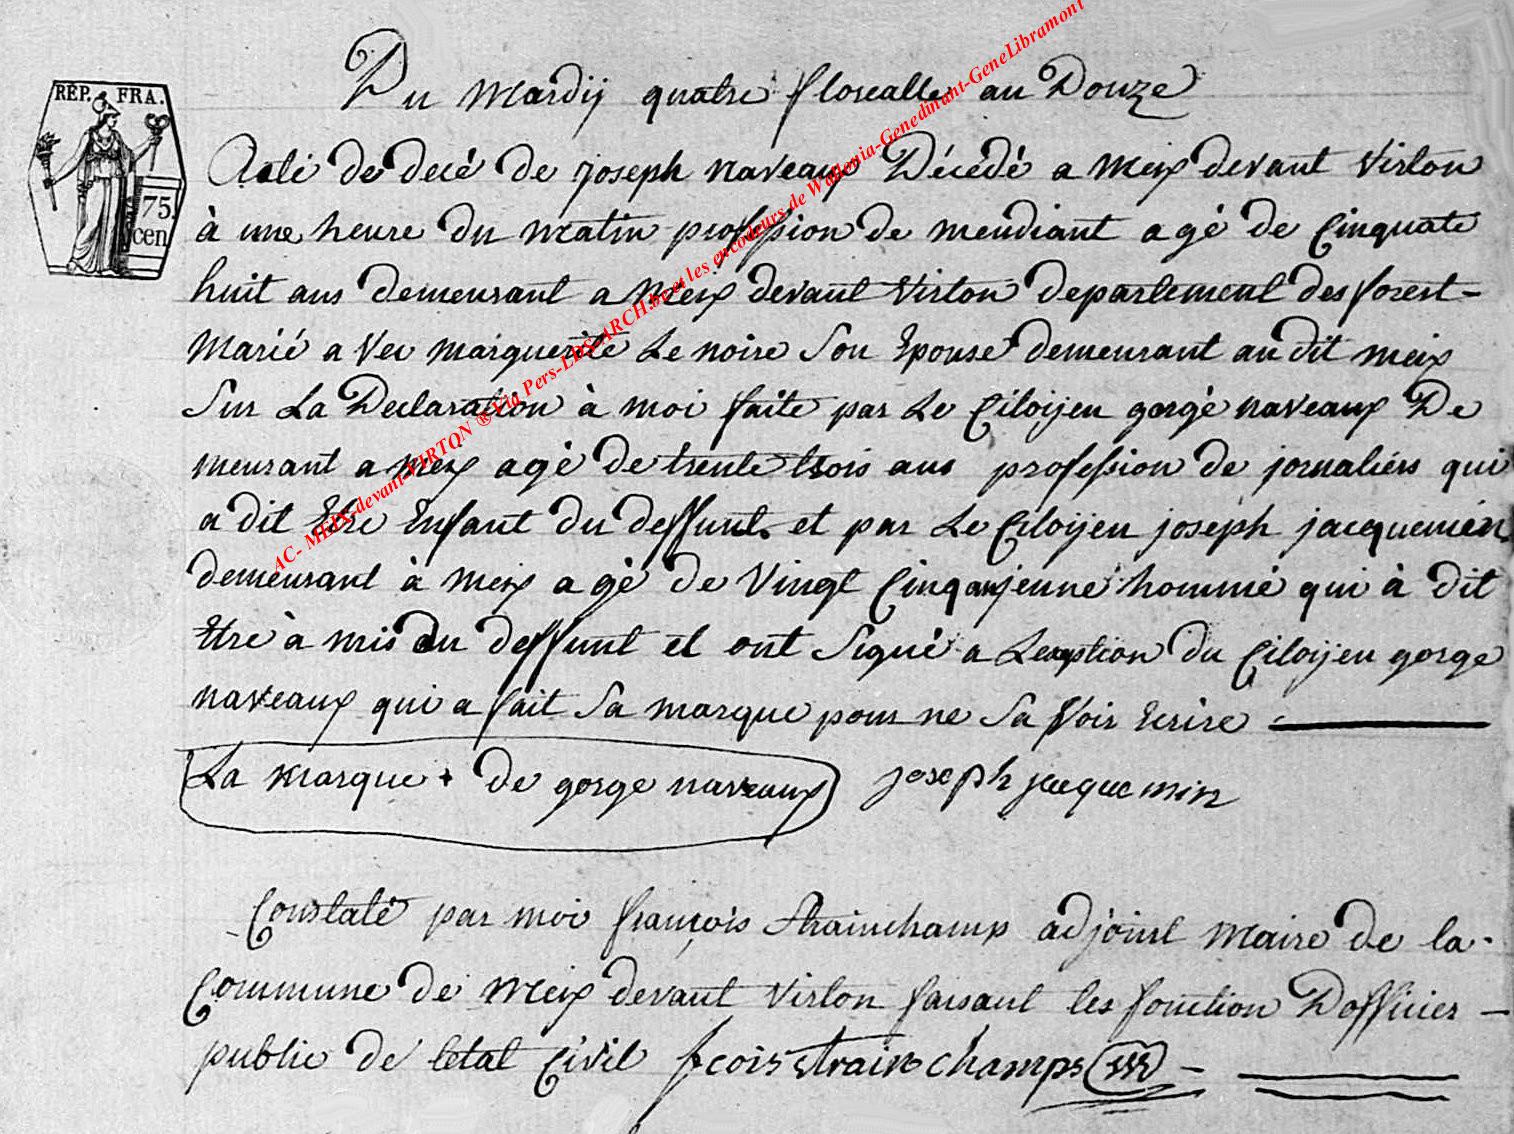 RÉP. FRA.
75.
cen
Du Mardij quatre floréalle an Douze
Acte de decé de joseph naveaux Décédé a Meix devant Virton
à une heure du Matin profession de mendiant agé de Cinquate
huit ans demeurant a Meix devant Virton departement des forest -
Marié a Vec marguerite Le noire Son Epouse demeurant au dit Meix
Sur La Declaration à moi faite par Le Citoijen gorge naveaux De
meurant a Meix agé de trente trois ans profession de jornaliers qui
a dit Etre Enfant du deffunt et par Le Citoijen joseph jacquemin
demeurant à Meix agé de Vingt Cinq ans jeune hommé qui à dit
Etre à mis du deffunt et ont Signé a Leception du Citoijen gorge
naveaux qui a fait Sa marque pour ne Sa Voir Ecrire
La Marque + de gorge naveaux joseph jacque min
Constaté par moi françois Strainchamp adjoint Maire de la
Commune de Meix devant Virton faisant les fonction Dofficier -
public de letat Civil fcois strainchamps
AC- MEIX-devant-VIRTON ® Via Pers-LDS-ARCH.be et les encodeurs de Wallonia-Genedinant-GeneLibramont